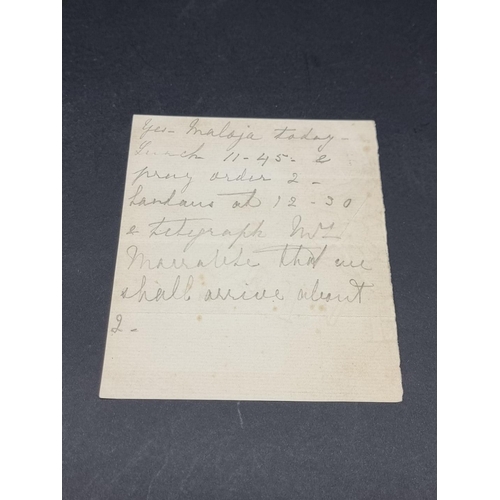 Yes - Maloja today -
Lunch 11-45- e
pray order 2 -
Landaus at 12-30
e telegraph Mrs
that we
shall arrive about
2 -